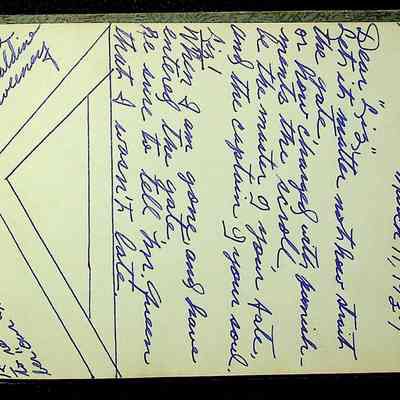 March 11, 19
Dear "Liz"
Let it matter not how strait
the gate,
or how charged with punish-
ments the scroll,
be the master of your fate,
and the captain of your soul.
When I am gone and have
entered the gate
Be sure to tell Mr. Green
that I wasn't late.
aldine
weeney